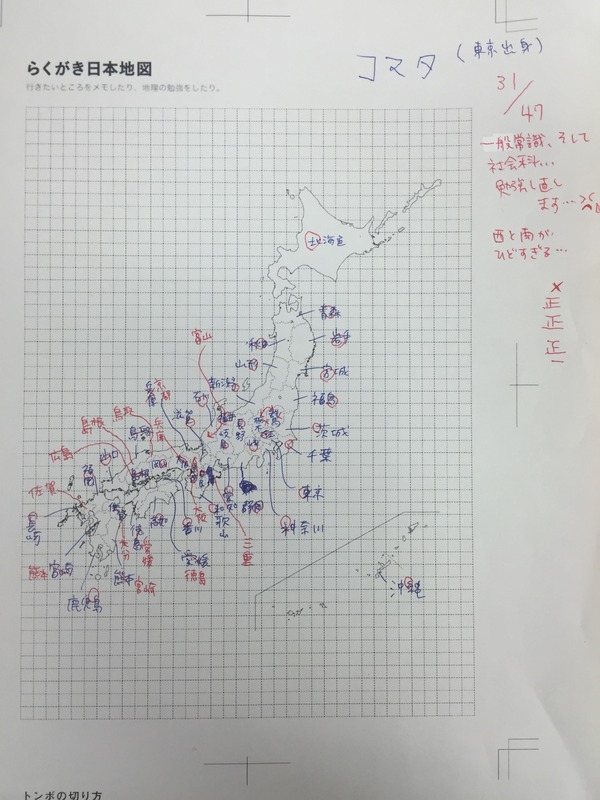 らくがき日本地図
行きたいところをメモしたり、地理の勉強をしたり。
コマタ (東京出身)
31/47
一般常識、そして
社会科...
勉強し直し
ます...
西と南が
ひどすぎる...
×
正
正
正
北海道
青森
秋田
岩手
富山
山形
宮城
新潟
福島
石川
茨城
千葉
東京
神奈川
京都
兵庫
滋賀
鳥取
島根
兵庫
鳥取
広島
福岡
山口
島根
岡山
長野
岐阜
静岡
愛知
和歌山
三重
大阪
佐賀
長崎
高知
香川
愛媛
徳島
徳島
愛媛
大分
熊本
宮崎
熊本
宮崎
鹿児島
沖縄
トンボの切り方